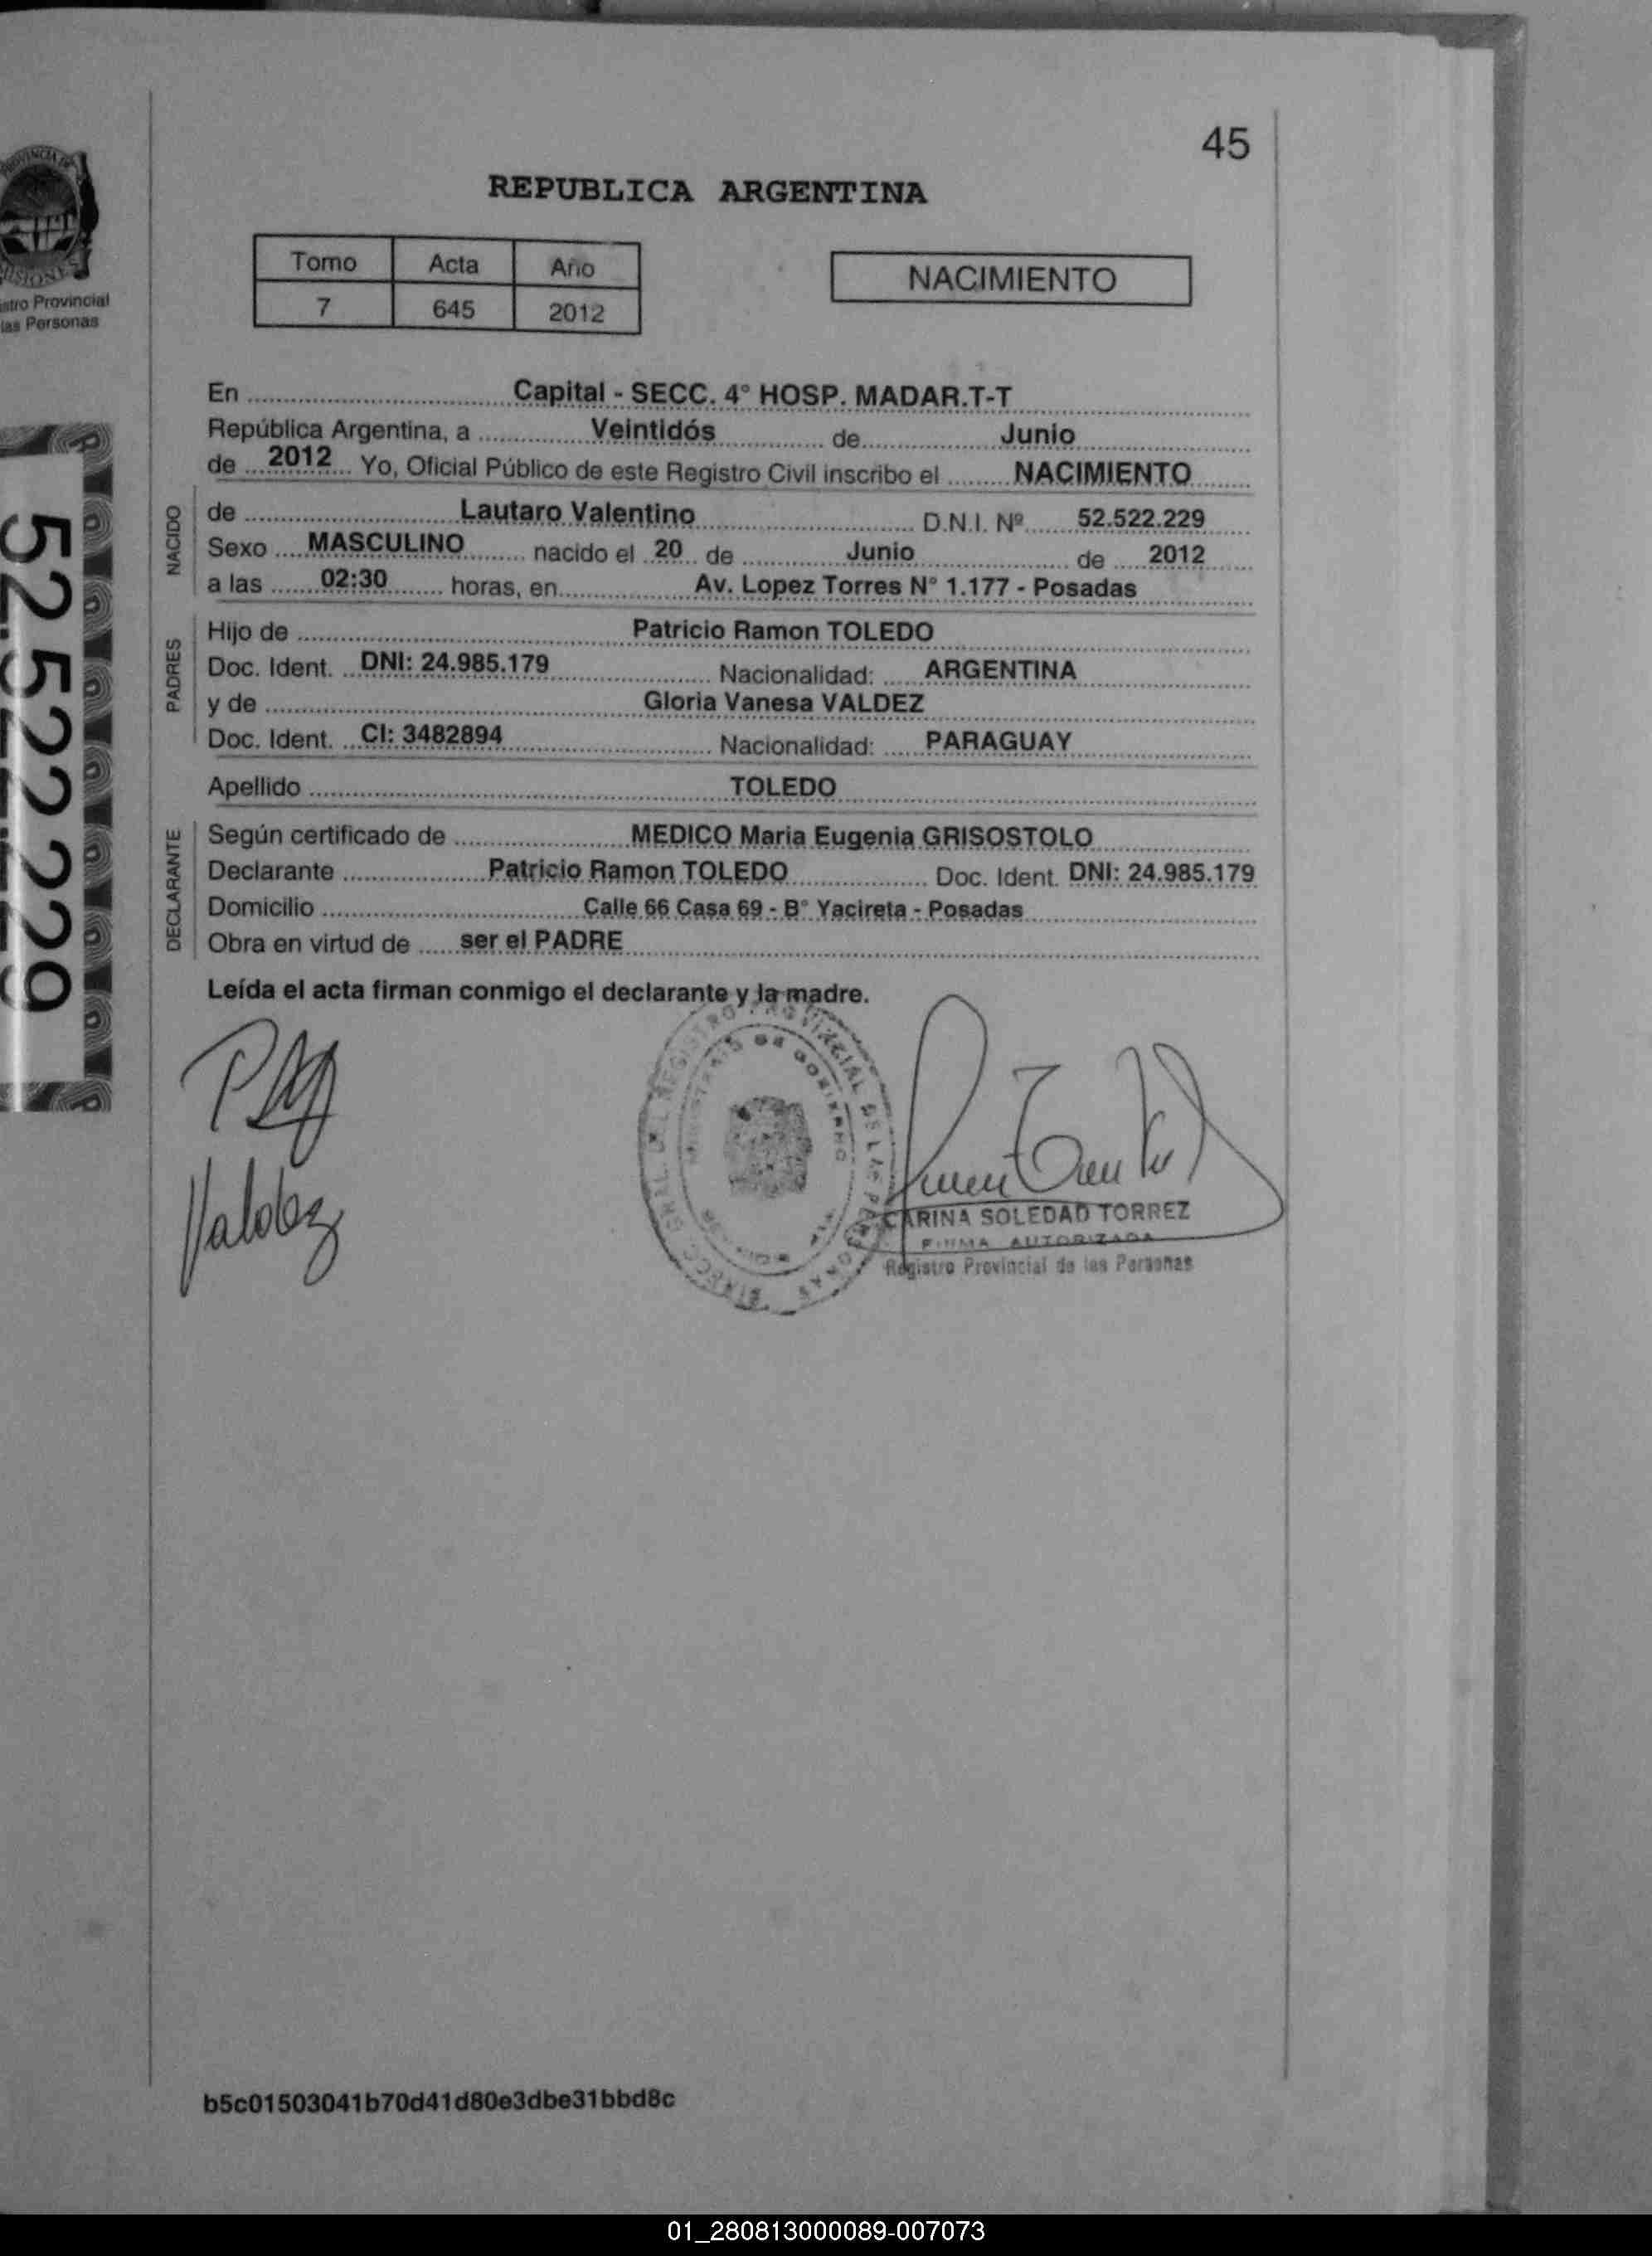 45
REPUBLICA ARGENTINA
PROVINCIA DE
MISIONES
istro Provincial
las Personas
Tomo Acta Año
7 645 2012
NACIMIENTO
En Capital - SECC. 4° HOSP. MADAR.T-T
República Argentina, a Veintidós de Junio
de 2012 Yo, Oficial Público de este Registro Civil inscribo el NACIMIENTO
NACIDO
de Lautaro Valentino D.N.I. Nº 52.522.229
Sexo MASCULINO nacido el 20 de Junio de 2012
a las 02:30 horas, en Av. Lopez Torres N° 1.177 - Posadas
PADRES
Hijo de Patricio Ramon TOLEDO
Doc. Ident. DNI: 24.985.179 Nacionalidad: ARGENTINA
y de Gloria Vanesa VALDEZ
Doc. Ident. CI: 3482894 Nacionalidad: PARAGUAY
Apellido TOLEDO
DECLARANTE
Según certificado de MEDICO Maria Eugenia GRISOSTOLO
Declarante Patricio Ramon TOLEDO Doc. Ident. DNI: 24.985.179
Domicilio Calle 66 Casa 69 - B° Yacireta - Posadas
Obra en virtud de ser el PADRE
Leída el acta firman conmigo el declarante y la madre.
52.522.229
Valdez
DIRECC. GRAL. DEL REGISTRO PROVINCIAL DE LAS PERSONAS
MINISTERIO DE GOBIERNO
CARINA SOLEDAD TORREZ
FIRMA AUTORIZADA
Registro Provincial de las Personas
b5c01503041b70d41d80e3dbe31bbd8c
01_280813000089-007073